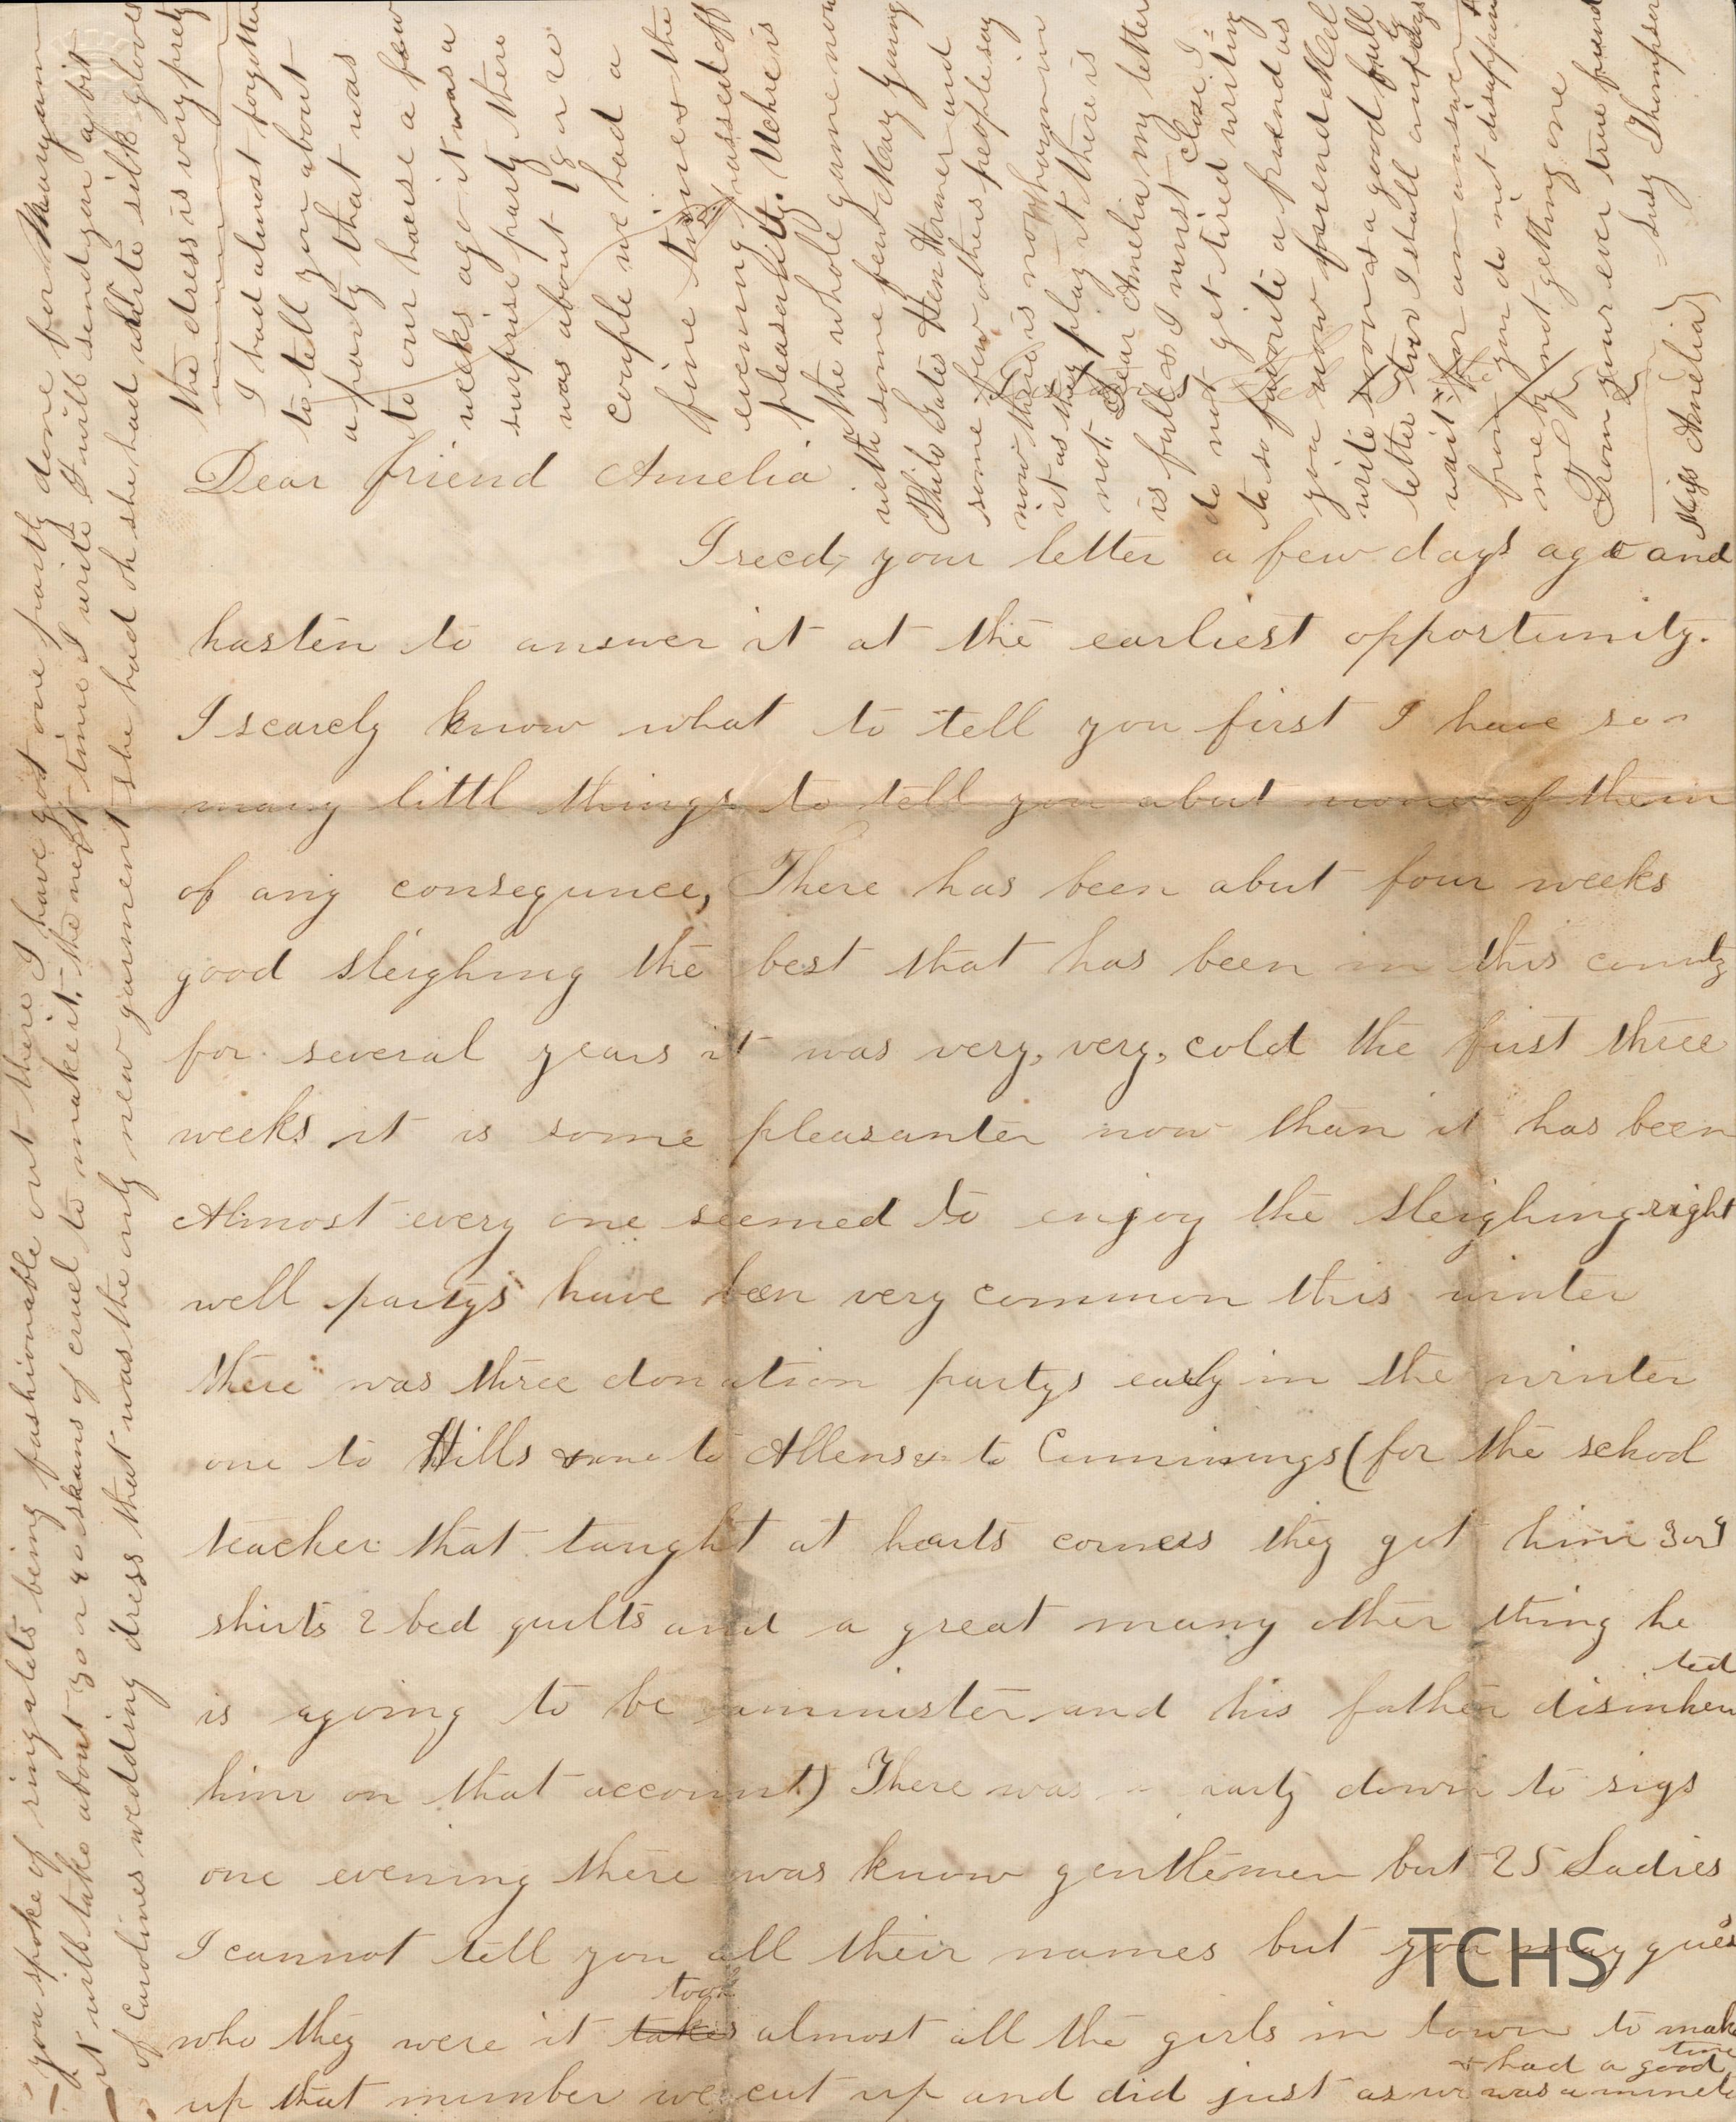 Dear friend Amelia
I recd, your letter a few days ago and
hasten to answer it at the earliest opportunity.
I scarely know what to tell you first I have so
many littl things to tell you abut none of them
of any consequnce, There has been abut four weeks
good sleighing the best that has been in this county
for several years it was very, very, cold the first three
weeks it is some pleasanter now than it has been
Almost every one seemed to enjoy the sleighing right
well partys have been very common this winter
there was three donation partys early in the winter
one to Hills & one to Allens & to Cummings (for the school
teacher that taught at harts corners they got him 3 or 4
shirts 2 bed quilts and a great many other thing he
is agoing to be a minister and his father disinherited
him on that account) There was a party down to sigs
one evening there was know gentlemen but 25 Ladies
I cannot tell you all their names but you may guess
who they were it takes took almost all the girls in town to make
up that number we cut up and did just as we was a mineto
& had a good time
you spoke of ringalets being fashionable out there I have got one partly done for Maryann
it will take about 30 or 40 skeins of cruel to make it. the next time I write I will send you a bit
of Carolines wedding dress that was the only new garment she had oh she had white silk gloves
the dress is very prety
I had almost forgotten
to tell you about
a party that was
to our house a few
weeks ago it was a
surprise party there
was about 18 or 20
couple we had a
fine time & the
evening passed off
pleasantly. Uchre is
the whole game now
with some few Mary young
Philo Bates Hen Horner and
some few others people say
now there is no harm in
it as they play it there is
not. Dear Amelia my letter
is full & I must close I
do not get tired writing
to so favorite a friend as
you now friend Mel
write soon as a good full
letter & I shall
wait for an answer &
from you do not disappoint
me by not getting one
From your ever true friend
Susy Thompson
Miss Amelia
TCHS